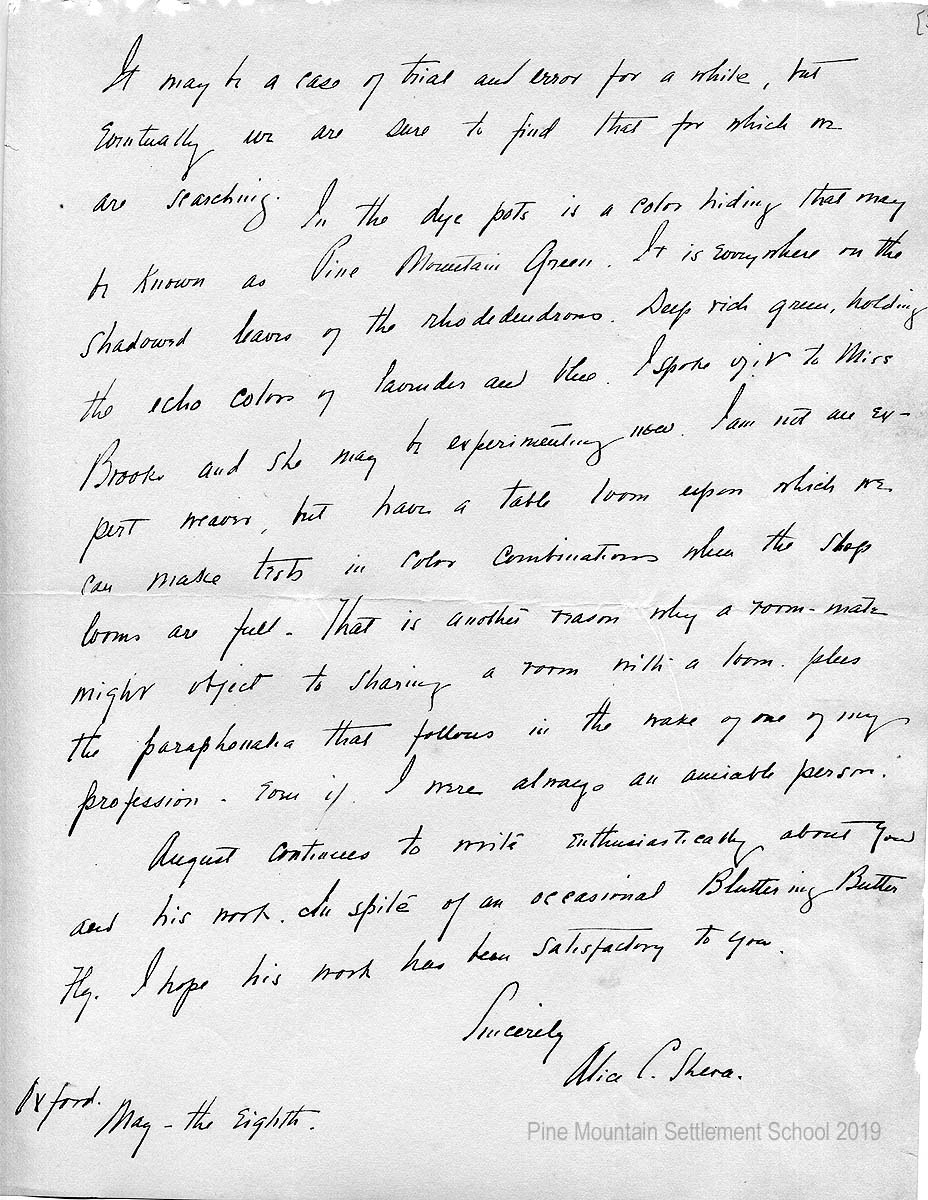 It may be a case of trial and error for a while, but
Eventually we are sure to find that for which we
are searching. In the dye pots is a color hiding that may
be known as Pine Mountain Green. It is Everywhere on the
shadowed leaves of the rhododendrons. Deep rich green, holding
the echo colors of lavender and blue. I spoke of it to Miss
Brooks and she may be experimenting now. I am not an ex-
pert weaver, but have a table loom upon which we
can make tests in color combinations when the shop
looms are full. That is another reason why a room-mate
might object to sharing a room with a loom. plus
the paraphenalia that follows in the wake of one of my
profession. Even if I were always an amiable person.
August continues to write Enthusiastically about you
and his work. In spite of an occasional Bluttering Butter
Fly. I hope his work has been satisfactory to you.
Sincerely
Alice C. Shera.
Oxford.
May - the Eighth.
Pine Mountain Settlement School 2019